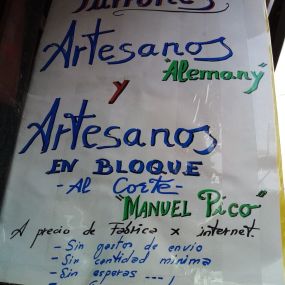 Turrones
Artesanos
"Alemany"
y
Artesanos
EN BLOQUE
- Al Corte -
"MANUEL Pico"
A precio de Fabrica x internet.
- Sin gastos de envio
- Sin cantidad minima
- Sin esperas ---!